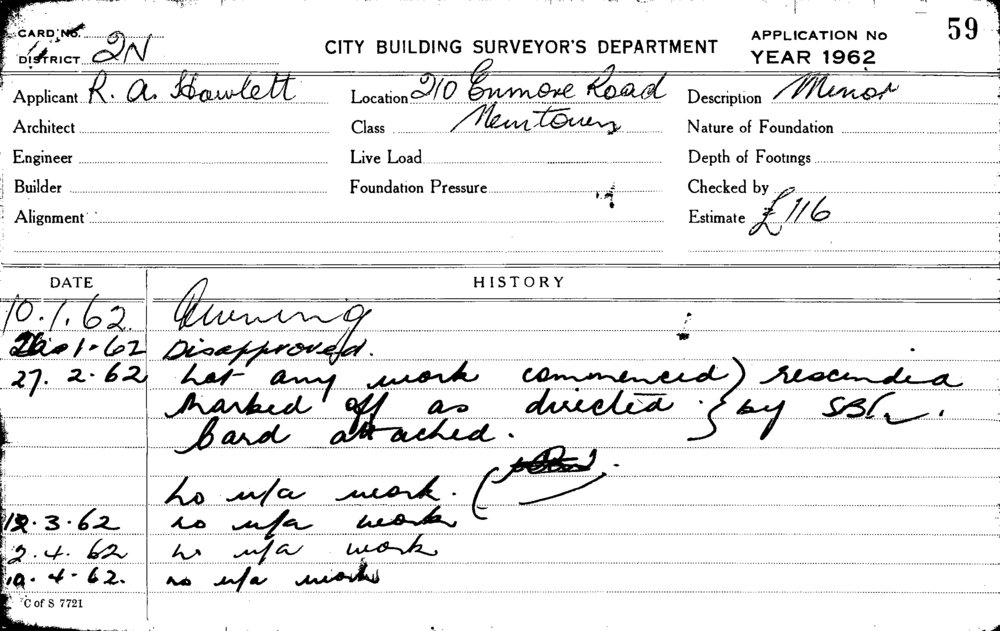 CARD No.
DISTRICT 2N
CITY BUILDING SURVEYOR'S DEPARTMENT
APPLICATION No 59
YEAR 1962
Applicant R. A. Howlett
Location 210 Enmore Road
Description Minor
Architect
Class Newtown
Nature of Foundation
Engineer
Live Load
Depth of Footings
Builder
Foundation Pressure
Checked by
Alignment
Estimate £116
DATE HISTORY
10.1.62 Awning
1.62 Disapproved.
27.2.62 not any work commenced } rescinded
marked off as directed } by SBS.
Card attached.
No u/a work.
12.3.62 no u/a work
2.4.62 no u/a work
10.4.62. no u/a work
C of S 7721